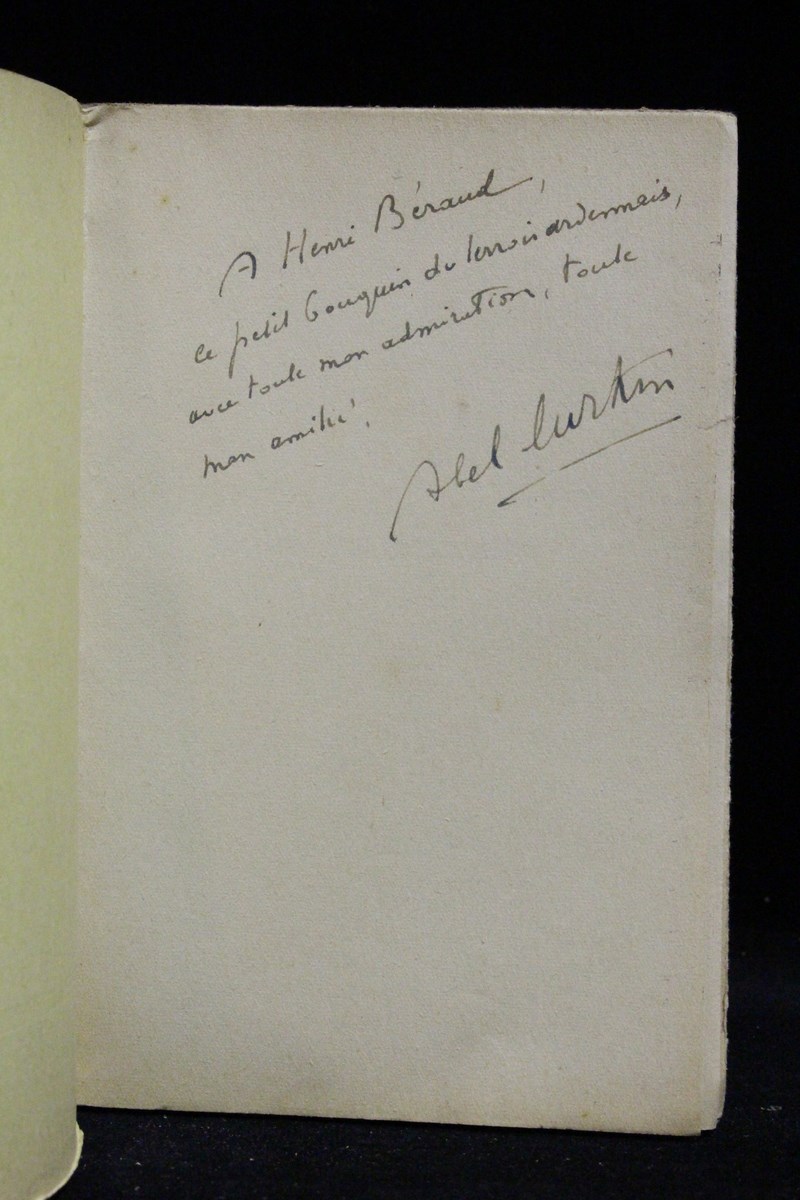 A Henri Béraud,
ce petit bouquin du terroir ardennais,
avec toute mon admiration, toute
mon amitié.
Abel Lurkin